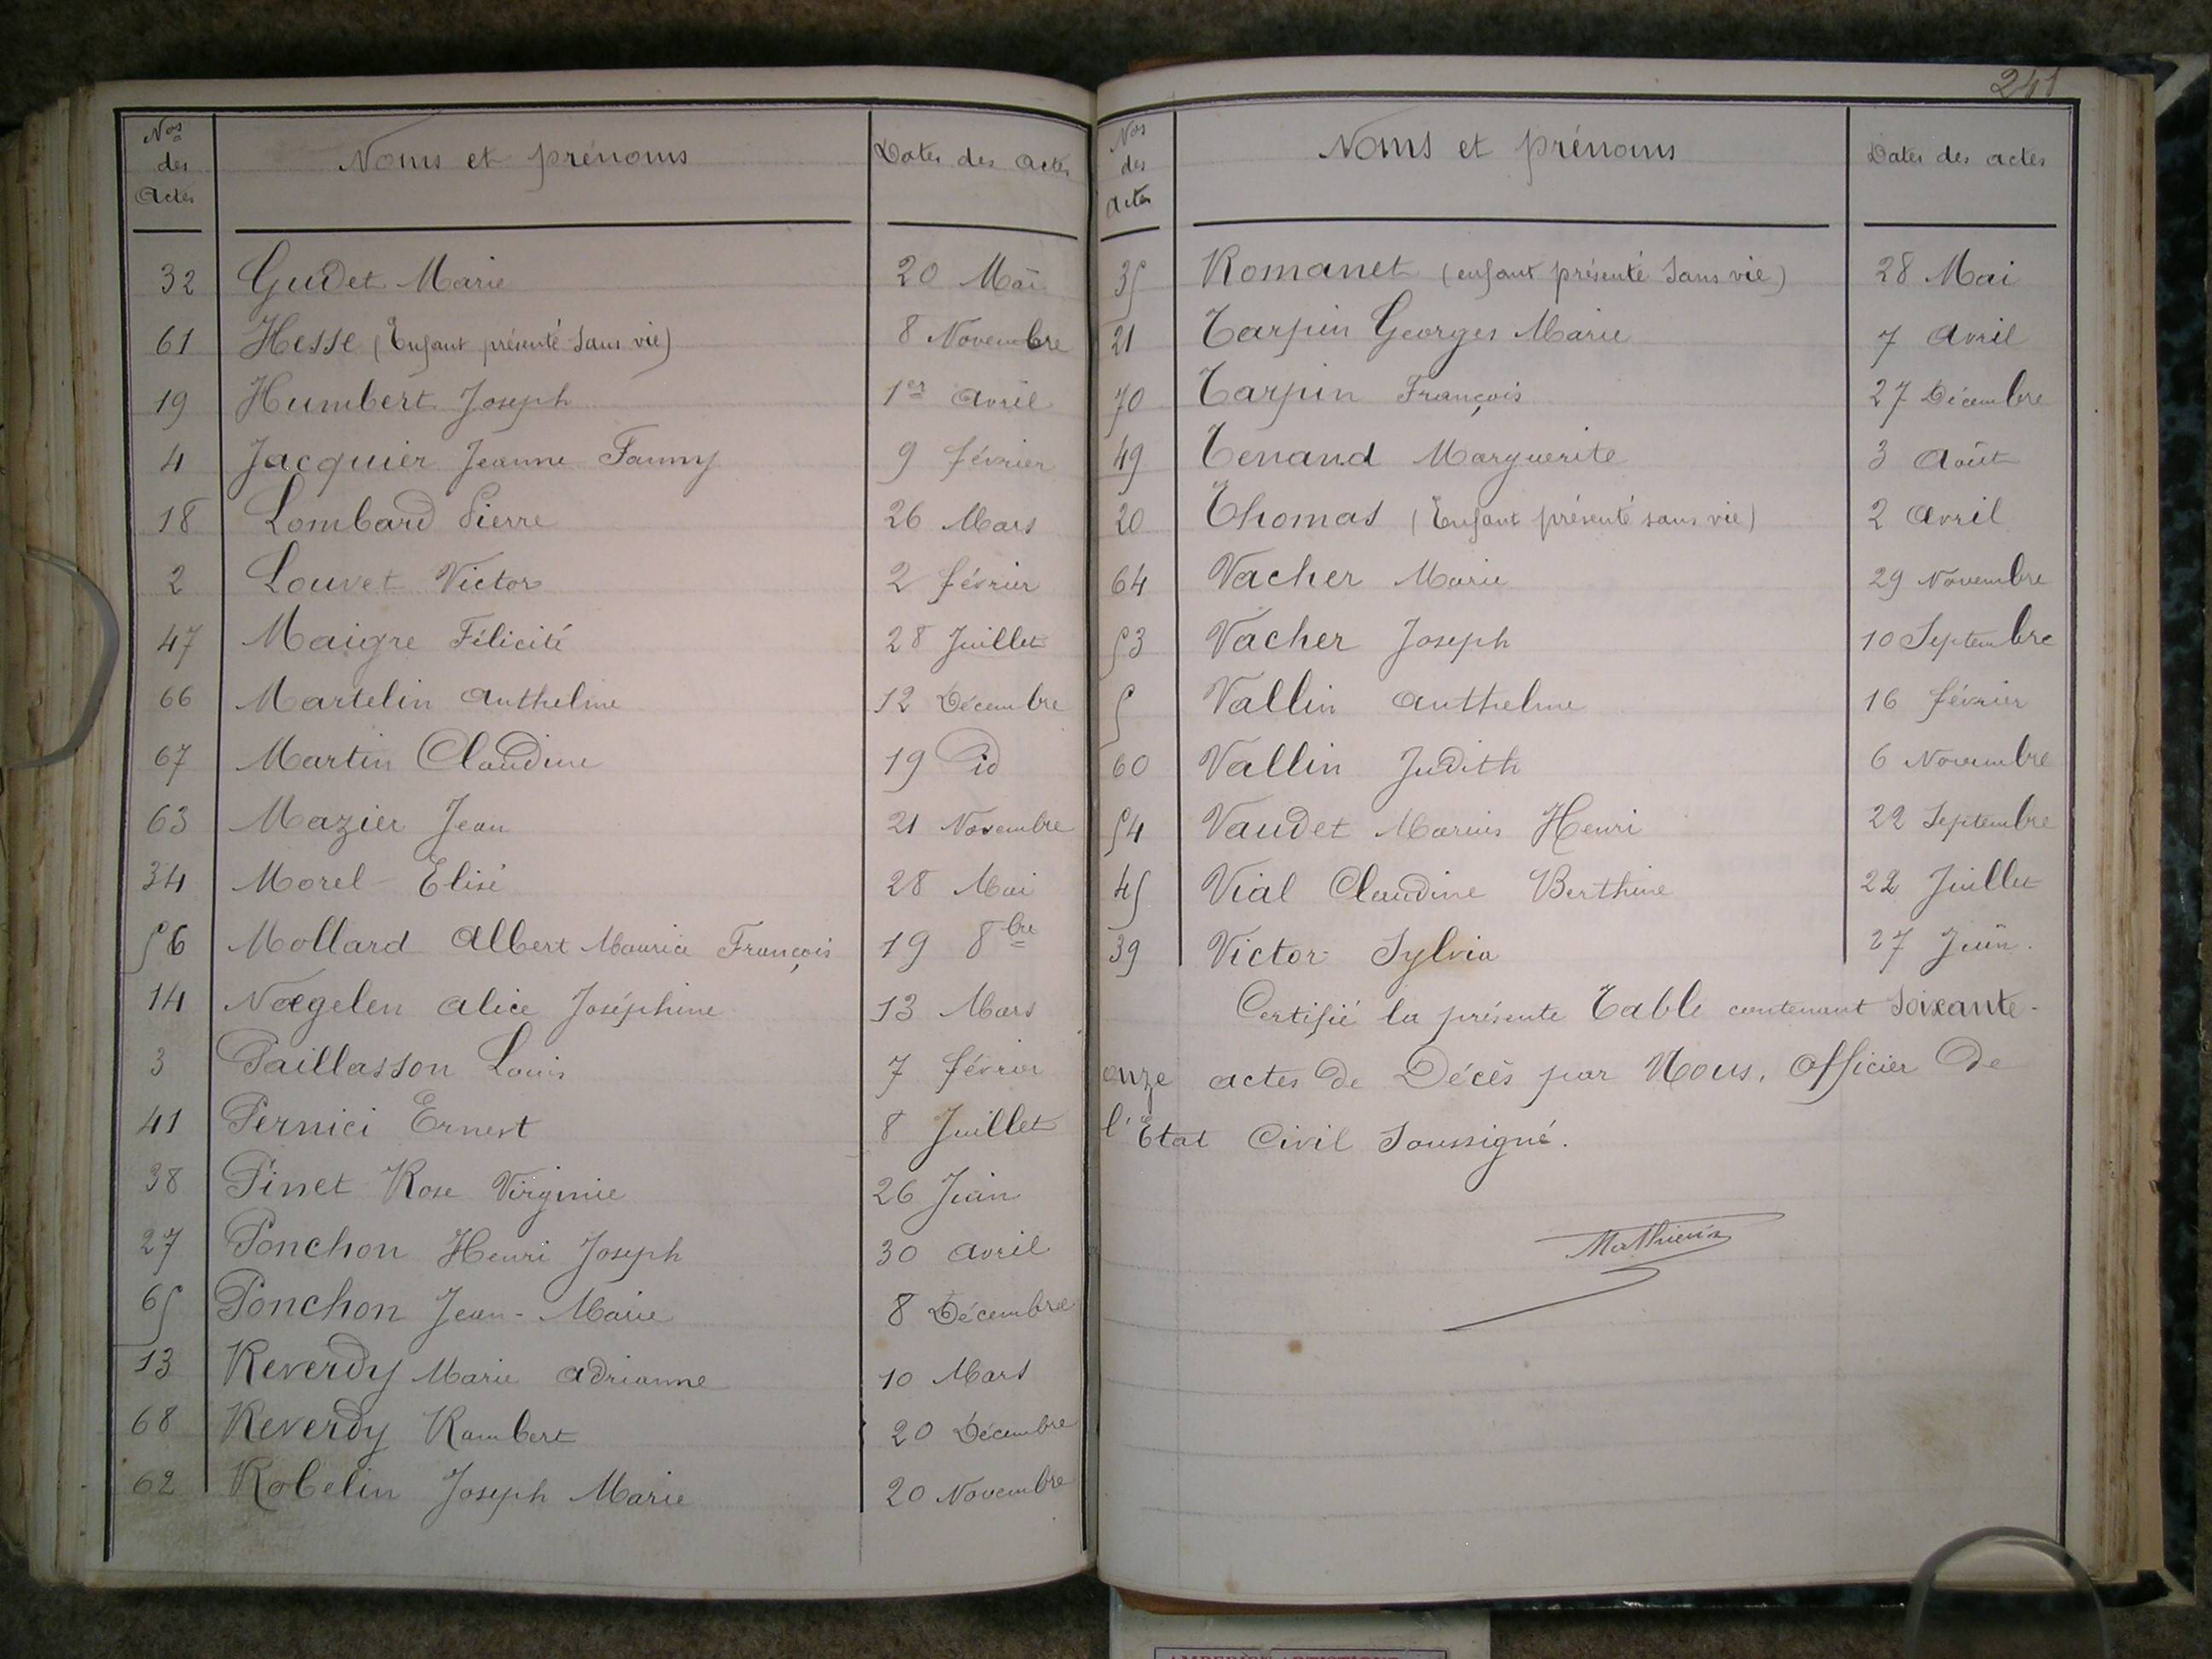 Nos des Actes Noms et prénoms Dates des actes
32 Gudet Marie 20 Mai
61 Hesse (Enfant présenté sans vie) 8 Novembre
19 Humbert Joseph 1er avril
4 Jacquier Jeanne Fanny 9 février
18 Lombard Pierre 26 Mars
2 Louvet Victor 2 février
47 Maigre Félicité 28 Juillet
66 Martelin Anthelme 12 Décembre
67 Martin Claudine 19 id
63 Mazier Jean 21 Novembre
34 Morel Elisé 28 Mai
56 Mollard Albert Maurice François 19 8bre
14 Nægelen Alice Joséphine 13 Mars
3 Paillasson Louis 7 février
41 Pernici Ernest 8 Juillet
38 Pinet Rose Virginie 26 Juin
27 Ponchon Henri Joseph 30 avril
65 Ponchon Jean-Marie 8 Décembre
13 Reverdy Marie Adrianne 10 Mars
68 Reverdy Rambert 20 Décembre
62 Robelin Joseph Marie 20 Novembre
241
Nos des Actes Noms et prénoms Dates des actes
35 Romanet (enfant présenté sans vie) 28 Mai
21 Tarpin Georges Marie 7 Avril
70 Tarpin François 27 Décembre
49 Tenand Marguerite 3 Août
20 Thomas (Enfant présenté sans vie) 2 Avril
64 Vacher Marie 29 Novembre
53 Vacher Joseph 10 Septembre
5 Vallin Anthelme 16 février
60 Vallin Judith 6 Novembre
54 Vaudet Marius Henri 22 Septembre
45 Vial Claudine Berthine 22 Juillet
39 Victor Sylvia 27 Juin.
Certifié la présente Table contenant Soixante-
onze actes de Décès par Nous, Officier de
l'Etat Civil Soussigné.